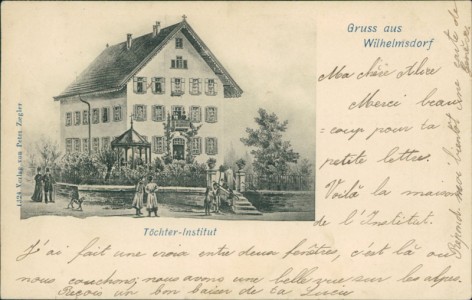 Gruss aus
Wilhelmsdorf
Ma chère Alice
Merci beau
=coup pour ta
petite lettre.
Voilà la maison
de l'Institut.
1424 Verlag von Peter Ziegler.
Töchter-Institut
J'ai fait une croix entre deux fenêtres, c'est là où
nous couchons, nous avons une belle vue sur les alpes.
Reçois un bon baiser de ta Lucie
Réponds moi bientôt une carte de